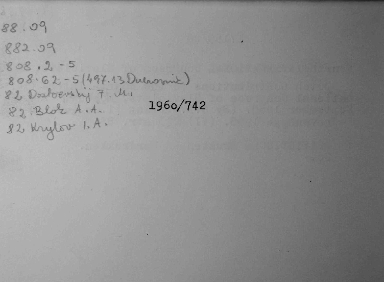 88.09
882.09
808.2-5
808.62-5(497.13 Dubrovnik)
82 Dostoevskij F. M.
82 Blok A.A.
1960/742
82 Krylov I.A.